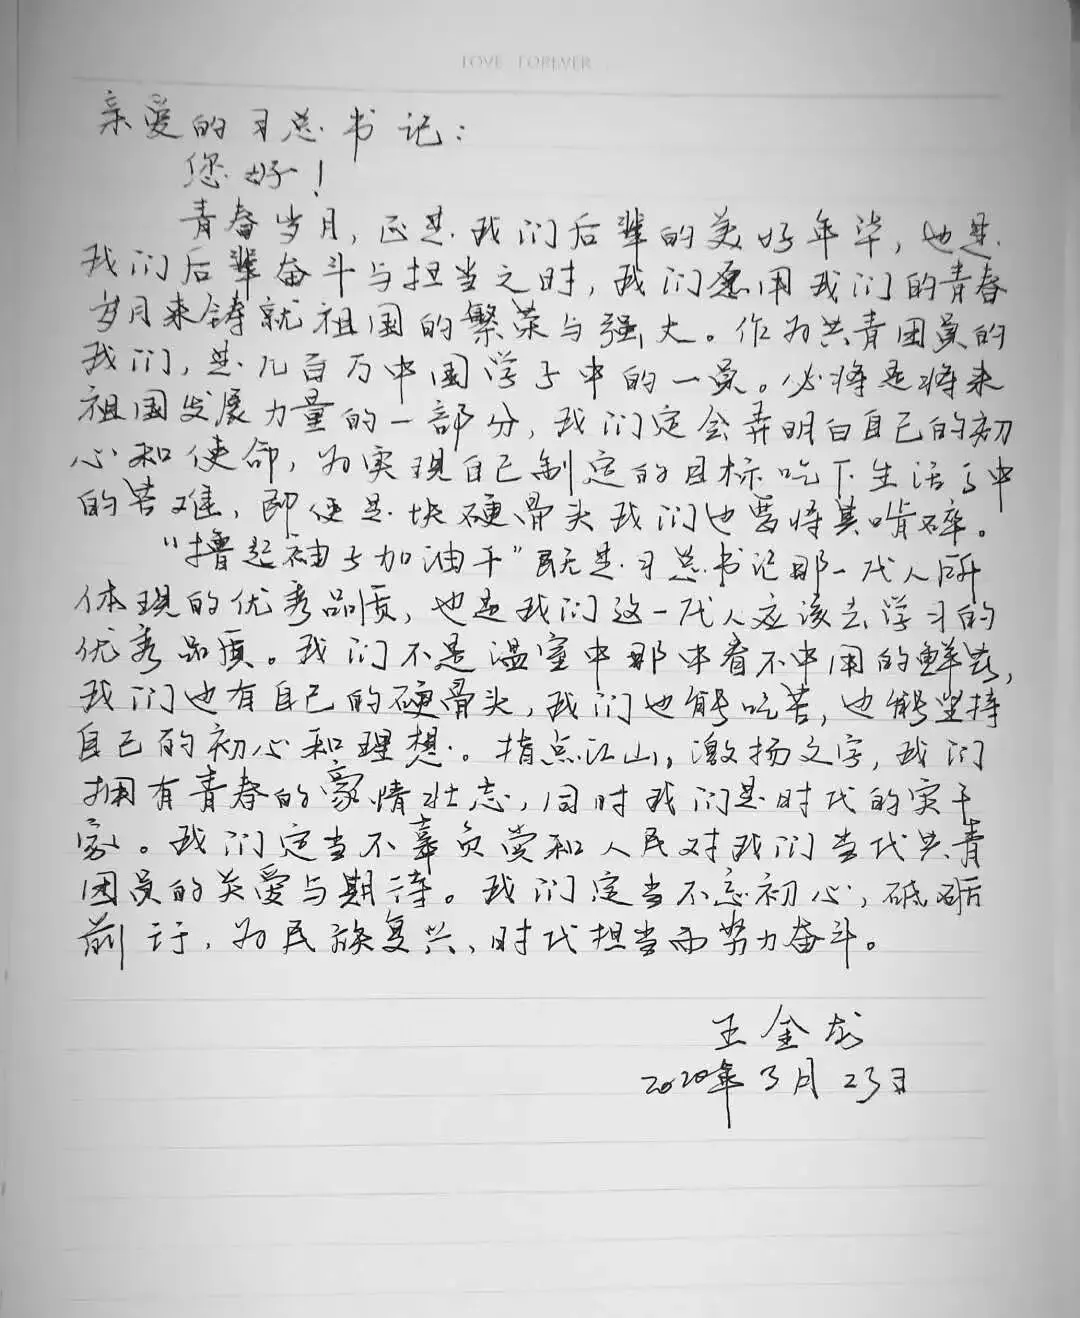 LOVE FOREVER
亲爱的习总书记：
您好！
青春岁月，正是我们后辈的美好年华，也是
我们后辈奋斗与担当之时，我们愿用我们的青春
岁月来铸就祖国的繁荣与强大。作为共青团员的
我们，是几百万中国学子中的一员。必将是将来
祖国发展力量的一部分，我们定会弄明白自己的初
心和使命，为实现自己制定的目标吃下生活之中
的苦难，即便是块硬骨头我们也要将其啃碎。
“撸起袖子加油干”既是习总书记那一代人所
体现的优秀品质，也是我们这一代人应该去学习的
优秀品质。我们不是温室中那中看不中用的鲜花，
我们也有自己的硬骨头，我们也能吃苦，也能坚持
自己的初心和理想。指点江山，激扬文字，我们
拥有青春的豪情壮志，同时我们是时代的实干
家。我们定当不辜负党和人民对我们当代共青
团员的关爱与期待。我们定当不忘初心，砥砺
前行，为民族复兴，时代担当而努力奋斗。
王金龙
2020年3月23日